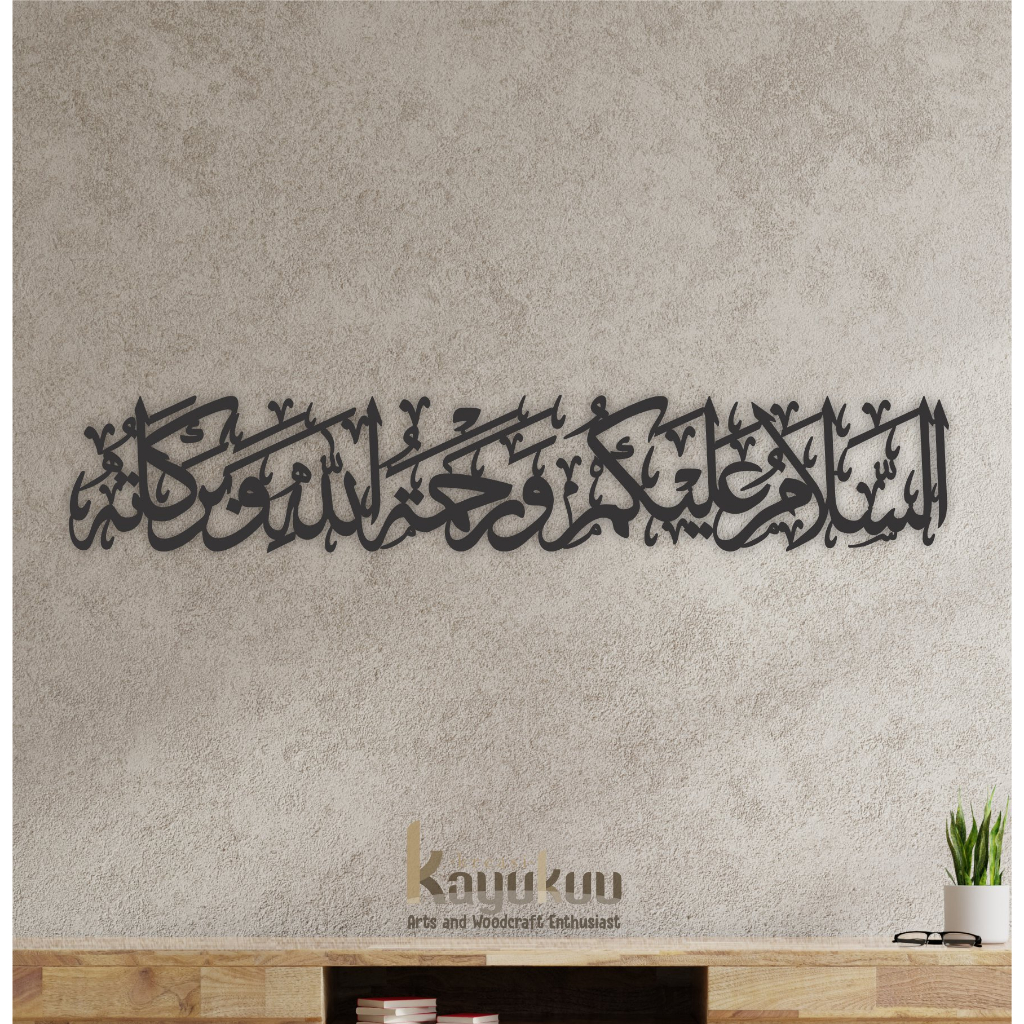 السلام عليكم ورحمة الله وبركاته
kayukuu
Arts and Woodcraft Enthusiast